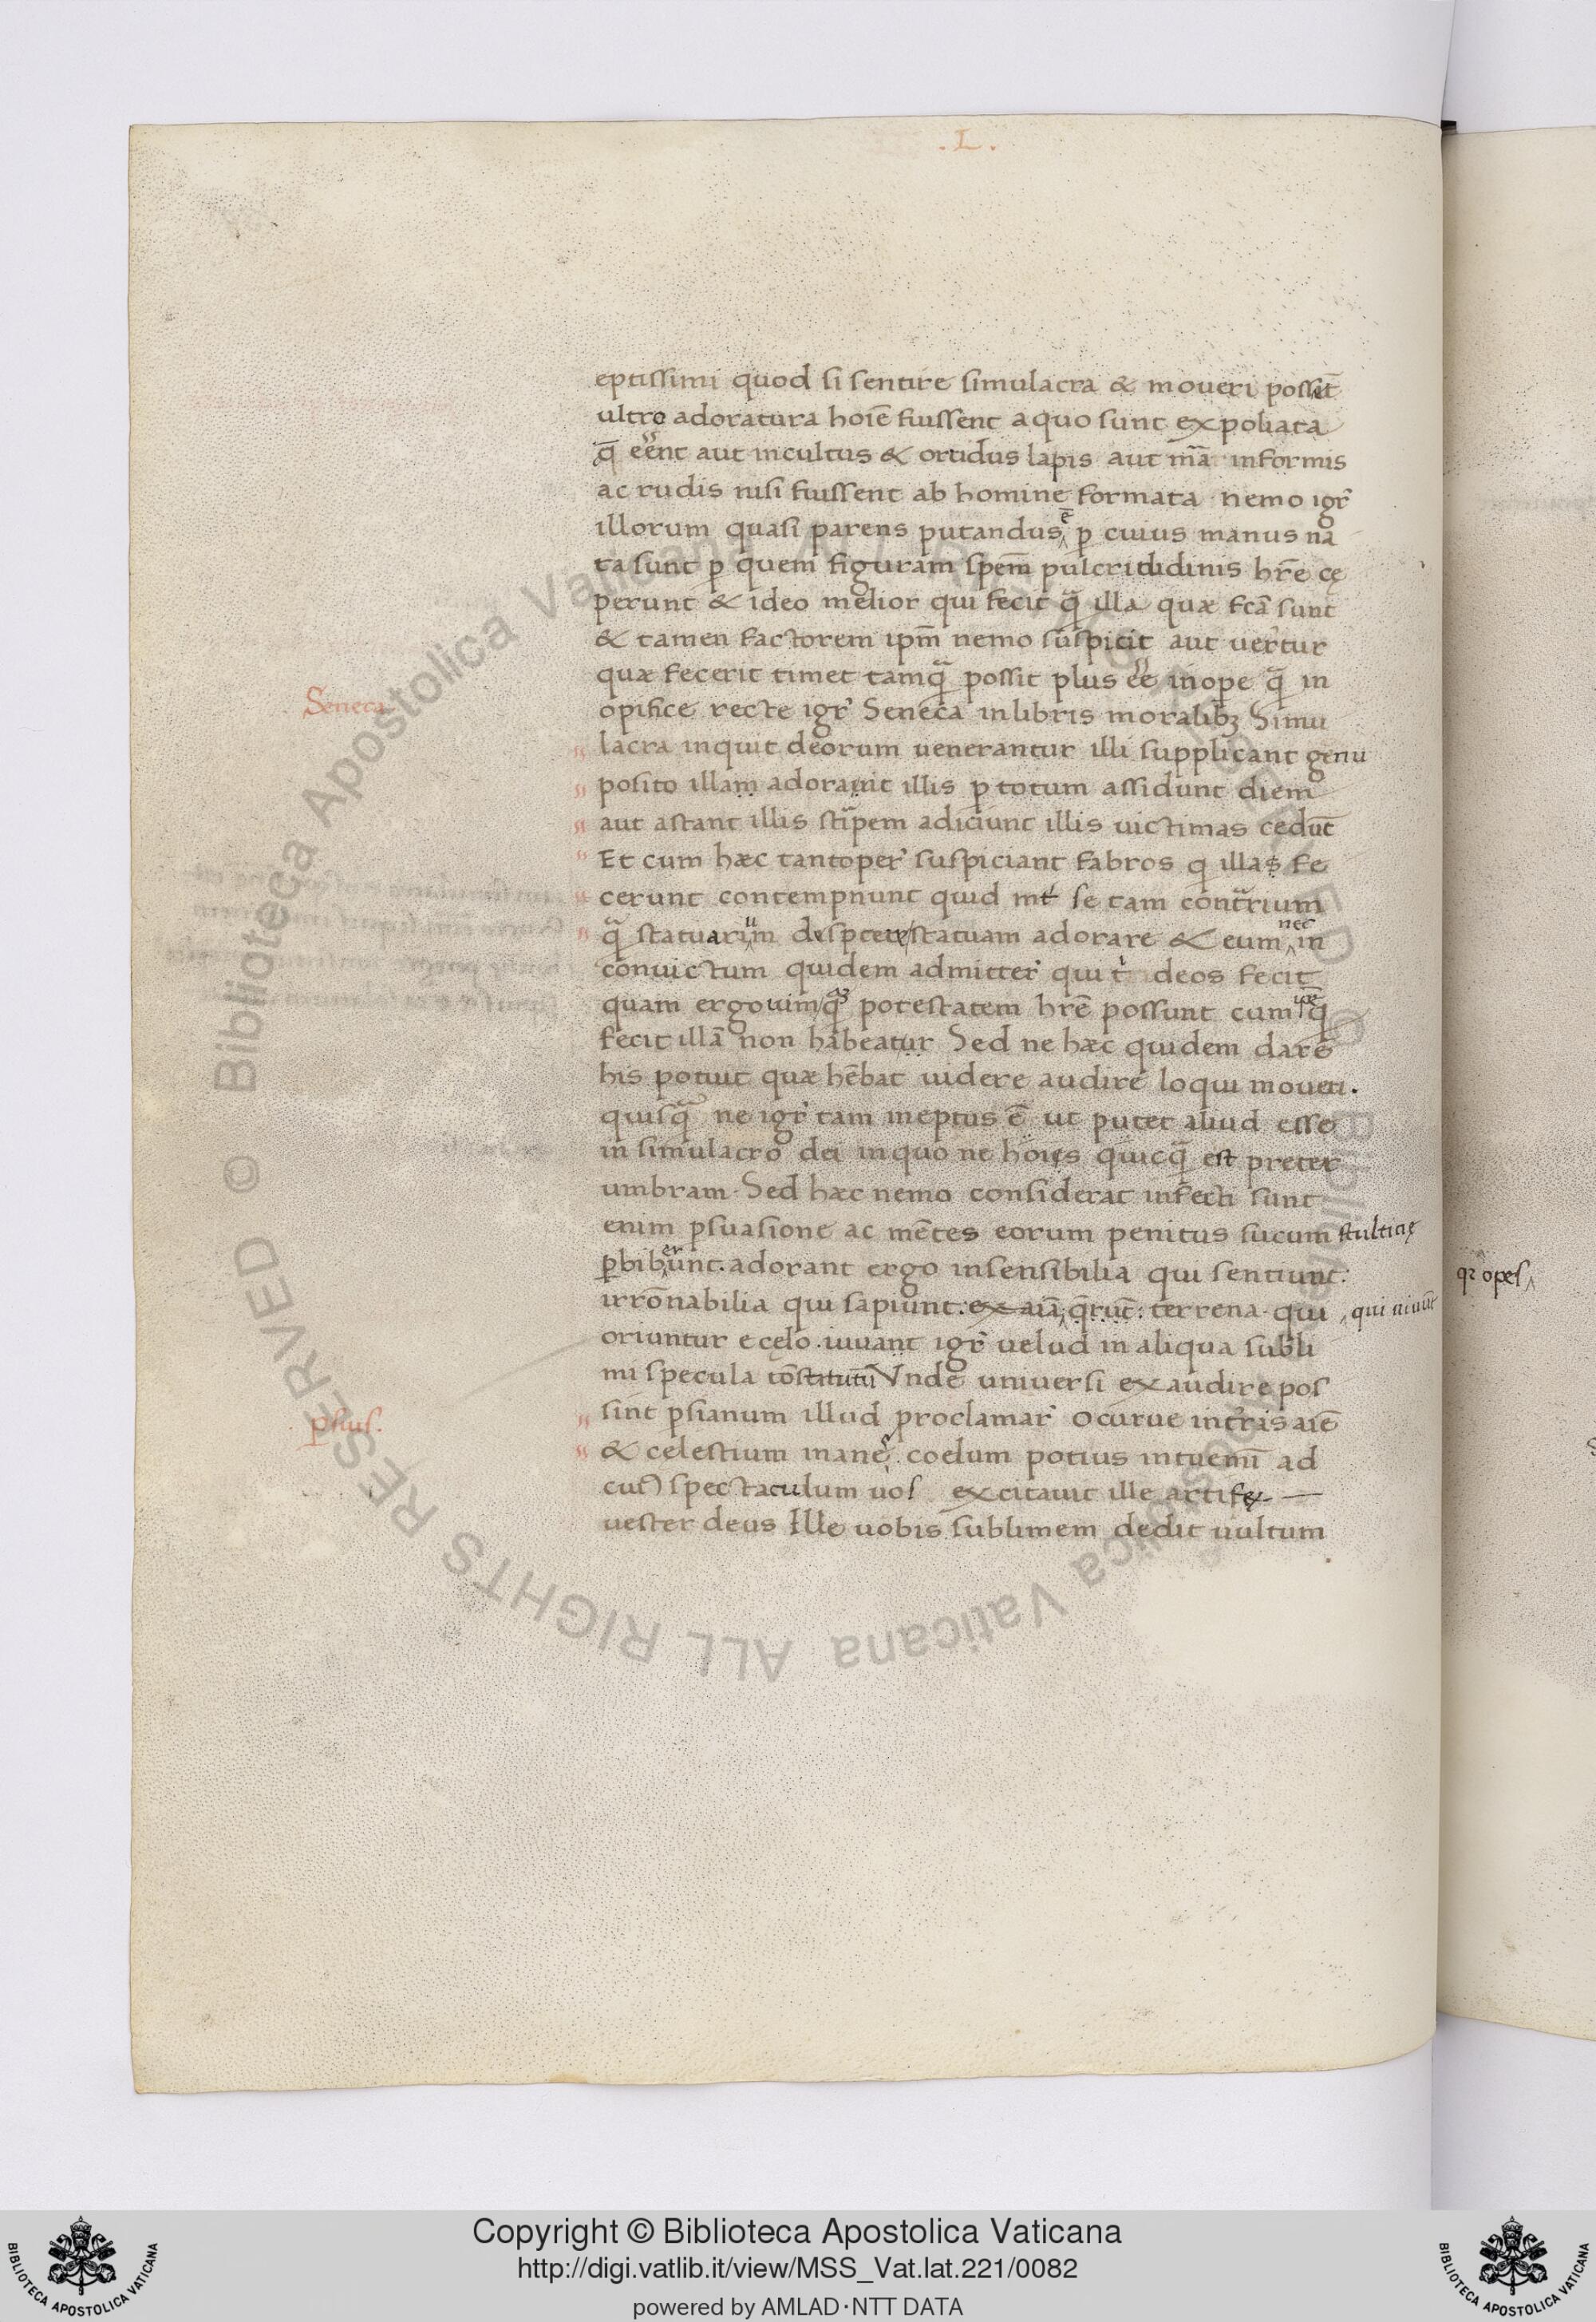 .L.
eptissimi quod si sentire simulacra & moueri possēt
ultro adoratura hoīē fuissent a quo sunt expoliata
q̄ eēnt aut incultus & ortidus lapis aut mā informis
ac rudis nisi fuissent ab homine formata nemo igr̄
illorum quasi parens putandus ē p cuius manus na
ta sunt p quem figuram spēm pulcritudinis hr̄e cę
perunt & ideo melior qui fecit q̄ illa quæ fcā sunt
& tamen factorem ipm̄ nemo suspicit aut uer̄tur
quæ fecerit timet tamq̄ possit plus eē in ope q̄ in
Seneca
opifice recte igr̄ Seneca in libris moralibȝ Simu
lacra inquit deorum uenerantur illi supplicant genu
posito illam adorant illis p totum assidunt diem
aut astant illis stipem adiciunt illis uictimas cedūt
Et cum hæc tantoper̄ suspiciant fabros q illas fe
cerunt contempnunt quid mt̄ se tam contrium
q̄ statuarium despicere statuam adorare & eum nec in
conuictum quidem admitter̄ qui t deos fecit
quam ergo uim q̄ potestatem hr̄e possunt cum ipse q
fecit illā non habeatur Sed ne hæc quidem dare
his potuit quæ hēbat uidere audire loqui moueri.
quisq̄ ne igr̄ tam ineptus ē ut putet aliud esse
in simulacro dei in quo ne hoīes quicq̄ est preter
umbram. Sed hæc nemo considerat infecti sunt
enim psuasione ac mētes eorum penitus sucum stulticię
pbiberunt. adorant ergo insensibilia qui sentiunt:
qr opes
irrōnabilia qui sapiunt: ex aīā q̄rūt: terrena qui , qui uiuūt
oriuntur e cęlo. iuuant igr̄ uelud in aliqua subli
mi specula cōstitutū Vnde uniuersi exaudire pos
Psius.
sint psianum illud proclamar̄ O curue in tris aīē
& celestium inanes. coelum potius intuemī ad
cuiꝰ spectaculum uos excitauit ille artifex —
uester deus Ille uobis sublimem dedit uultum
Copyright © Biblioteca Apostolica Vaticana
http://digi.vatlib.it/view/MSS_Vat.lat.221/0082
powered by AMLAD·NTT DATA
BIBLIOTECA APOSTOLICA VATICANA
BIBLIOTECA APOSTOLICA VATICANA